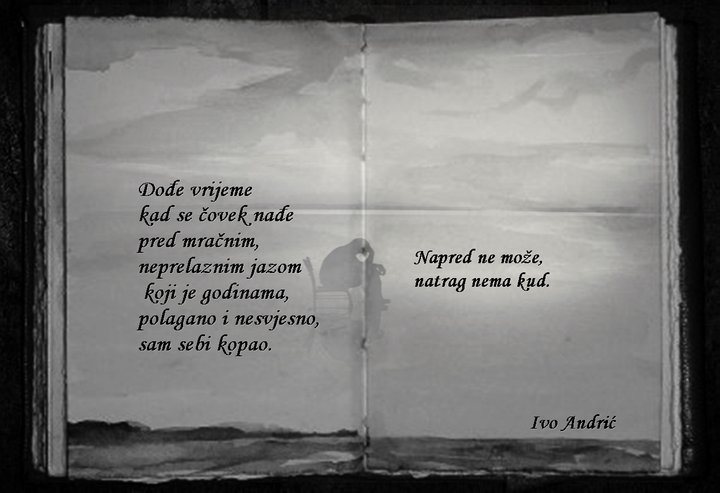 Dođe vrijeme
kad se čovek nađe
pred mračnim,
neprelaznim jazom
koji je godinama,
polagano i nesvjesno,
sam sebi kopao.
Napred ne može,
natrag nema kud.
Ivo Andrić